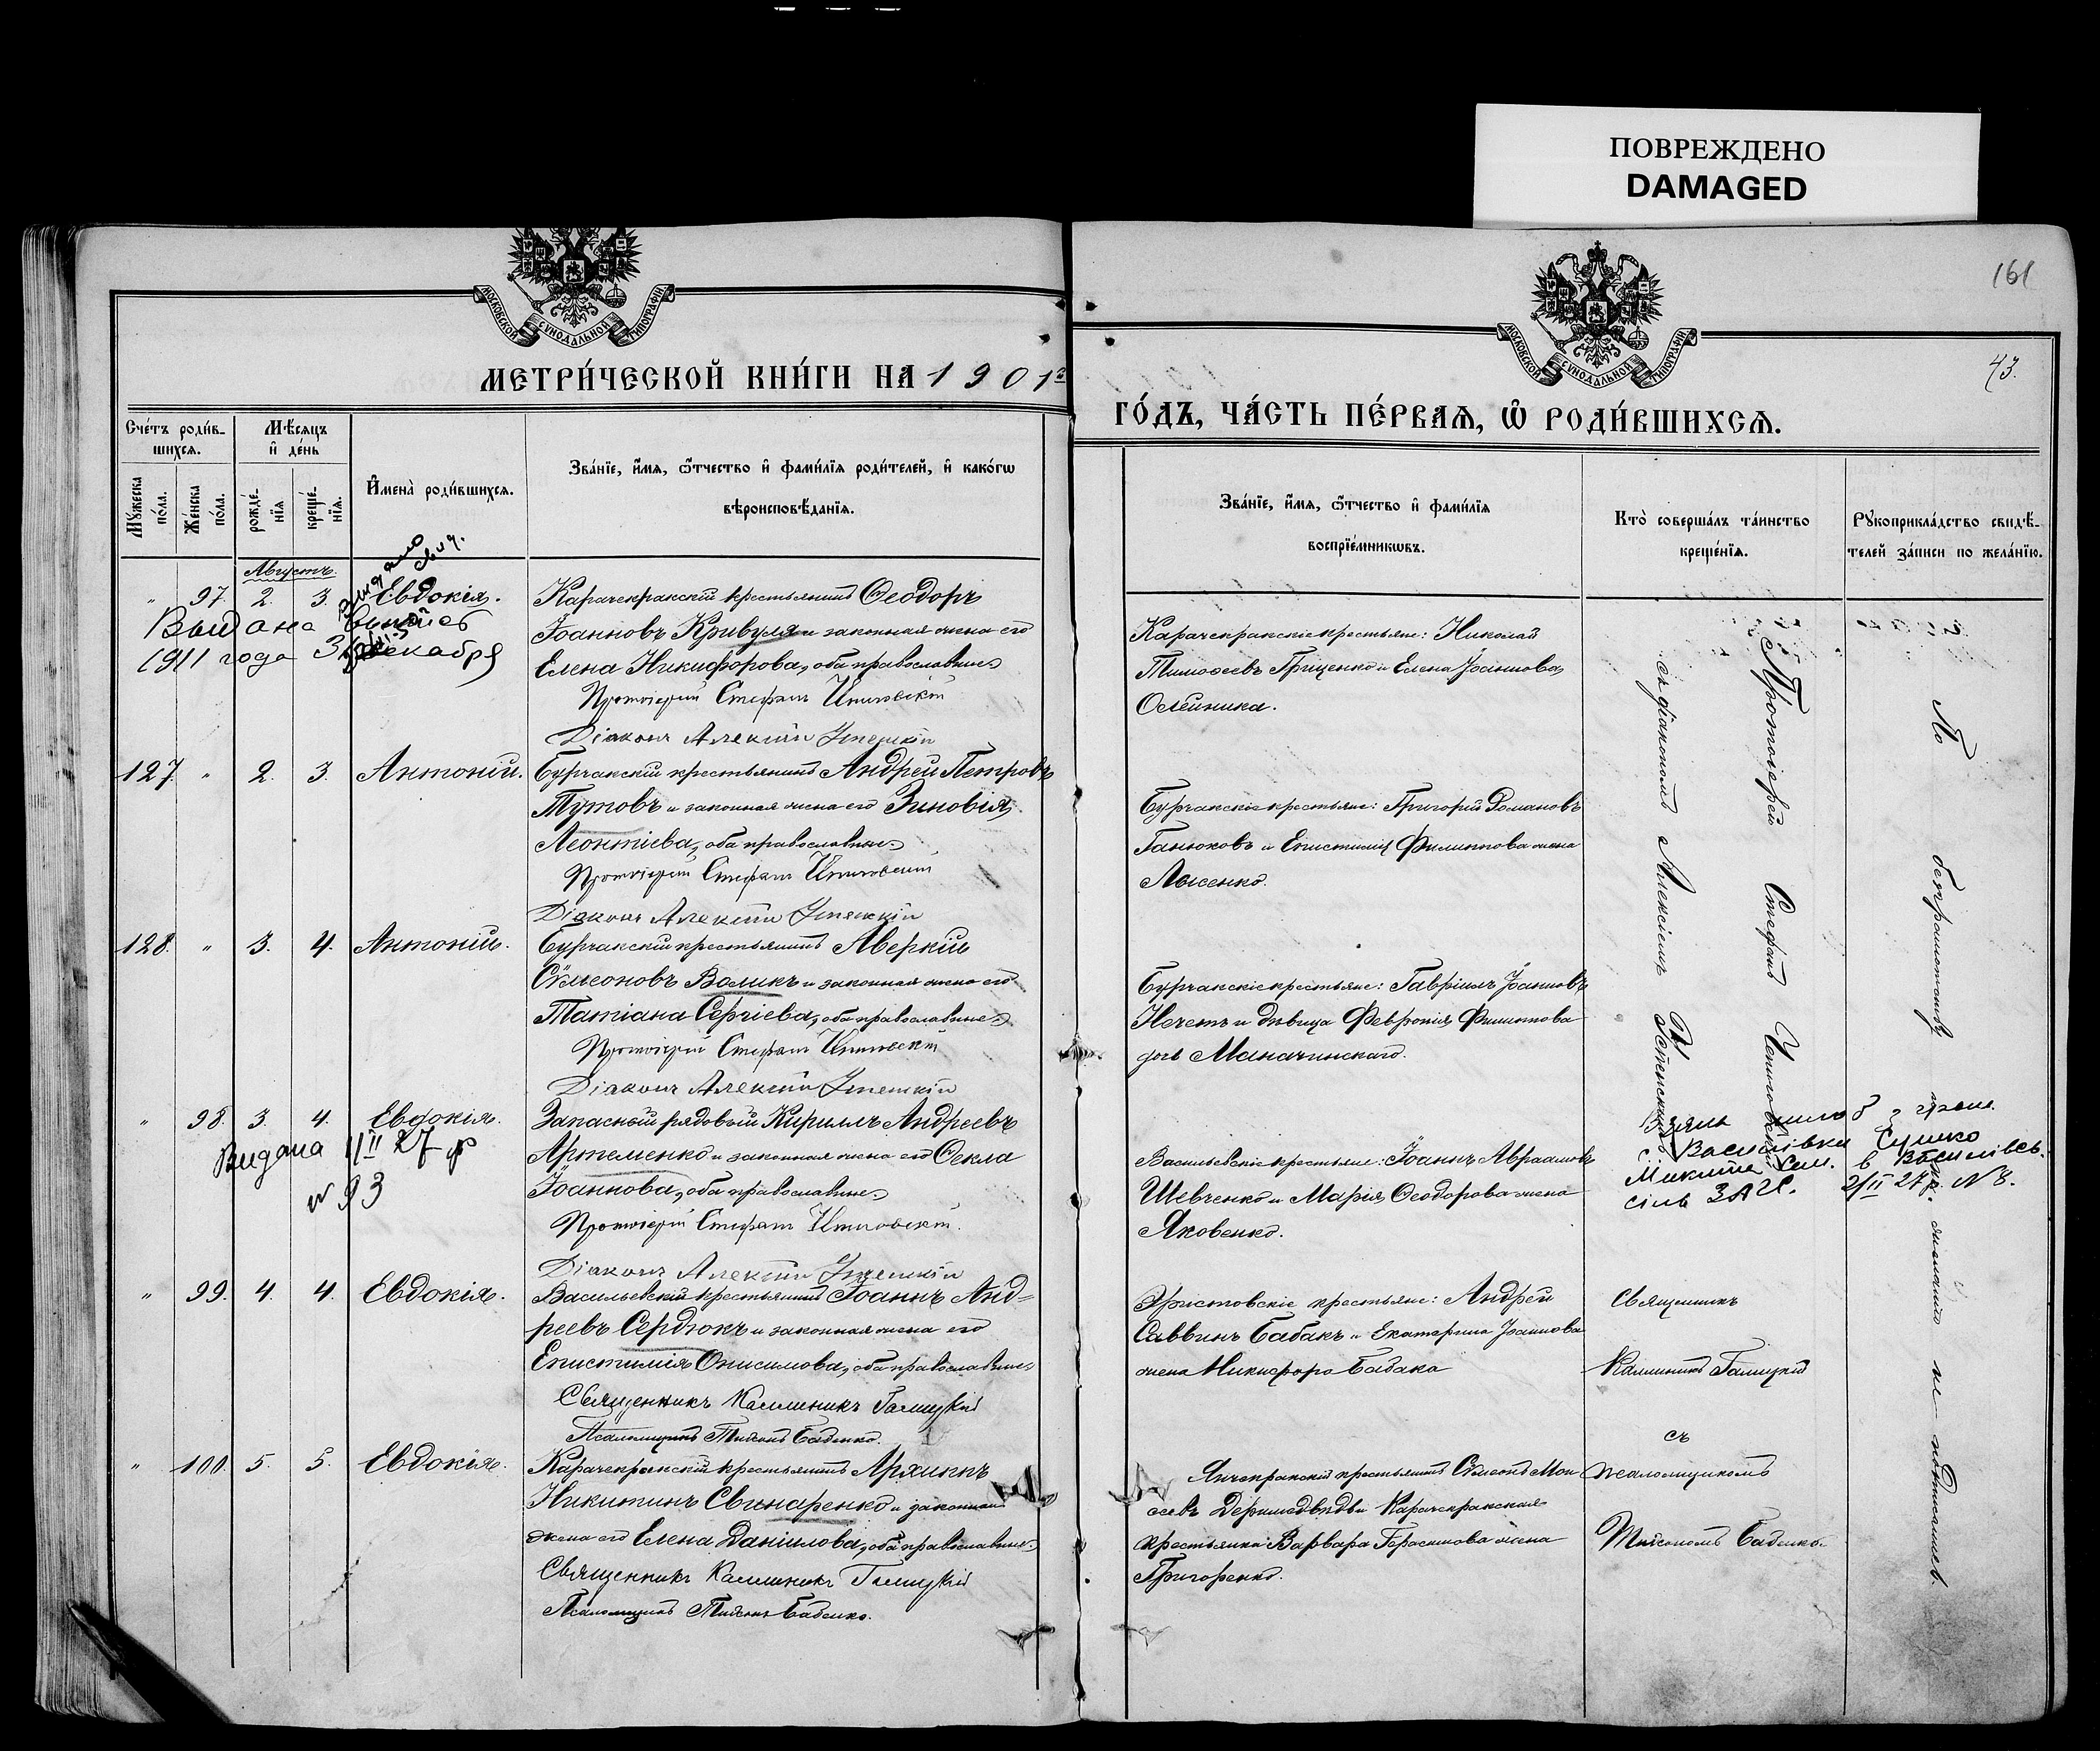 ПОВРЕЖДЕНО
DAMAGED
161
43.
МОСКОВСКОЙ СУНОДАЛЬНОЙ ТИПОГРАФІИ
МЕТРИ́ЧЕСКОЙ КНИ́ГИ НА 1901й
МОСКОВСКОЙ СУНОДАЛЬНОЙ ТИПОГРАФІИ
ГО́ДЪ, ЧА́СТЬ ПЕ́РВАѦ, Ѽ РОДИ́ВШИХСѦ.
Сче́тъ роди́в-
шихсѧ.
Мꙋ́жеска
по́ла.
Же́нска
по́ла.
Мѣ́сѧцъ
и҆ де́нь
рожде́-
нїѧ
креще́-
нїѧ.
И҆мена̀ роди́вшихсѧ.
Зва́нїе, и҆́мѧ, ѻ҆́тчество и҆ фами́лїѧ роди́телей, и҆ како́гѡ
вѣроисповѣ́данїѧ.
Зва́нїе, и҆́мѧ, ѻ҆́тчество и҆ фами́лїѧ
воспрїе́мникѡвъ.
Кто̀ соверша́лъ та́инство
креще́нїѧ.
Рꙋкоприкла́дство свидѣ́-
телей за́писи по жела́нїю.
Августъ.
" 97. 2. 3. Евдокія.
Выдана
1911 года 3 декабря
Карачекракскій крестьянинъ Ѳеодоръ
Іоанновъ Кривуля и законная жена его
Елена Никифорова, оба православные.
Протоіерей Стефанъ
Діаконъ Алексій
Карачекракскіе крестьяне: Николай
Тимоѳеевъ Гриценко и Елена Іоаннова
Олейника.
127. " 2. 3. Антоній.
Бурчакскій крестьянинъ Андрей Петровъ
Тутовъ и законная жена его Зиновія
Леонтіева, оба православные.
Протоіерей Стефанъ
Діаконъ Алексій
Бурчакскіе крестьяне: Григорій Романовъ
Ганюковъ и Епистимія Филиппова жена
Лысенко.
128. " 3. 4. Антоній.
Бурчакскій крестьянинъ Аверкій
Сѵмеоновъ Воликъ и законная жена его
Татіана Сергіева, оба православные.
Протоіерей Стефанъ
Діаконъ Алексій
Бурчакскіе крестьяне: Гавріилъ Іоанновъ
Нечетъ и дѣвица Февронія Филиппова
дочь Маначинскаго.
" 98. 3. 4. Евдокія.
Видана 1/II 27 р
N 93
Запасный рядовой Кириллъ Андреевъ
Артеменко и законная жена его Ѳекла
Іоаннова, оба православные.
Протоіерей Стефанъ
Діаконъ Алексій
Васильевскіе крестьяне: Іоаннъ Авраамовъ
Шевченко и Марія Ѳеодорова жена
Яковенко.
Протоіерей Стефанъ
съ діакономъ Алексіемъ
с. Василівки Сушко
Микита Сем. в Василівсь.
сіль ЗАГС. 2/II 27 р. N 8.
" 99. 4. 4. Евдокія.
Васильевскій крестьянинъ Іоаннъ Анд-
реевъ Сердюкъ и законная жена его
Епистимія Онисимова, оба православные.
Священникъ Каллиникъ Галицкій
Псаломщикъ Тихонъ Баденко.
Христовскіе крестьяне: Андрей
Саввинъ Бабакъ и Екатерина Іоаннова
жена Никифора Бабака
Священникъ
Каллиникъ Галицкій
съ
псаломщикомъ
Тихономъ Баденко.
" 100. 5. 5. Евдокія.
Карачекракскій крестьянинъ Архиппъ
Никитинъ Свинаренко и законная
жена его Елена Даніилова, оба православные.
Священникъ Каллиникъ Галицкій
Псаломщикъ Тихонъ Баденко.
Янчекракскій крестьянинъ Сѵмеонъ Мои-
сеевъ и Карачекракская
крестьянка Варвара Герасимова жена
Григоренко.
По безграмотству и желанію не подписались.